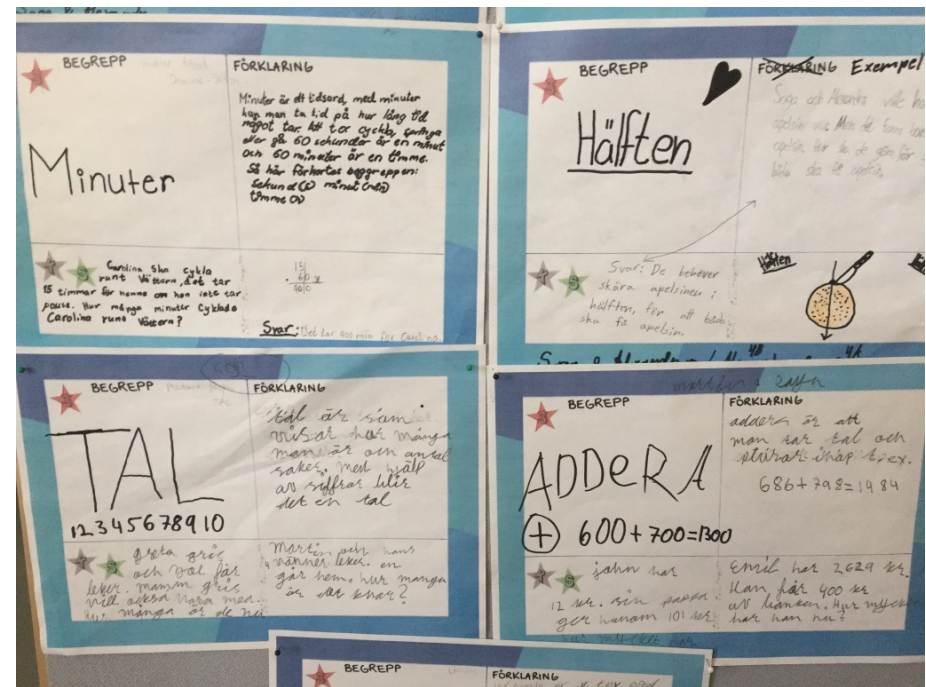 BEGREPP
FÖRKLARING
Minuter
Minuter är ett tidsord, med minuter
kan man ta tid på hur lång tid
något tar. Att tex cykla, springa
eller gå 60 sekunder är en minut
och 60 minuter är en timme.
Så här förkortas beggreppen:
sekund(s) minut(min)
timme(h)
Carolina ska cykla
runt Vättern, det tar
15 timmar för henne om hon inte tar
pause. Hur många minuter cyklade
Carolina runt Vättern?
15
60
900
Svar: Det tar 900 min för Carolina.
BEGREPP
FÖRKLARING Exempel
Hälften
Saga och Alexandra ville ha
apelsin
apelsin. Hur ska de göra för
båda ska få apelsin.
Svar: De behöver
skära apelsinen i
hälften, för att båda
ska få apelsin.
Hälften
BEGREPP
FÖRKLARING
TAL
12345678910
tal är som
visar hur många
man är och antal
saker. Med hjälp
av siffror blir
det en tal
greta gris
och joel får
leker. mamma gris
vill också vara med.
Hur många är de nu
Martin och hans
vänner leker. en
går hem. hur många
är det kvar?
BEGREPP
FÖRKLARING
ADDERA
+ 600+700=1300
addera är att
man tar tal och
plusar ihop t.ex.
686+798=1484
john har
12 kr. sin pappa
ger honom 101 kr
hur mycket har
Emil har 2629 kr.
Han får 400 kr
av banken. Hur mycket
har han nu?
BEGREPP
FÖRKLARING